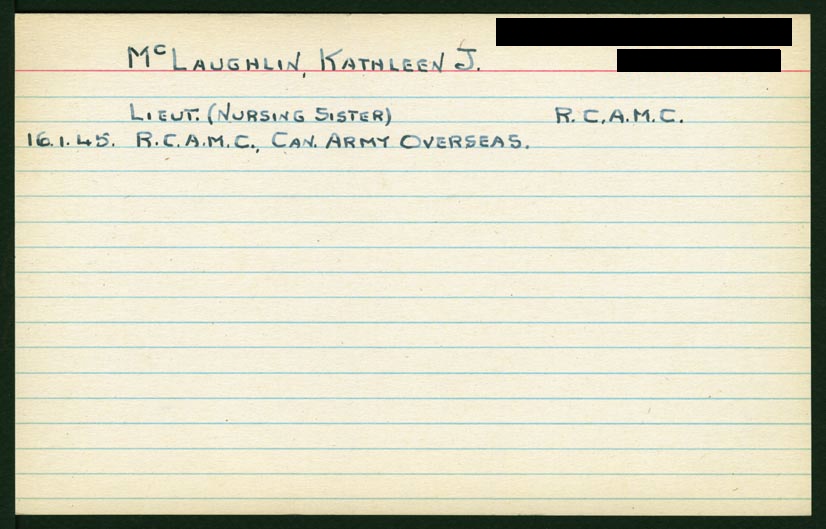 McLAUGHLIN, KATHLEEN J.
LIEUT. (NURSING SISTER) R.C.A.M.C.
16.1.45. R.C.A.M.C., CAN. ARMY OVERSEAS.